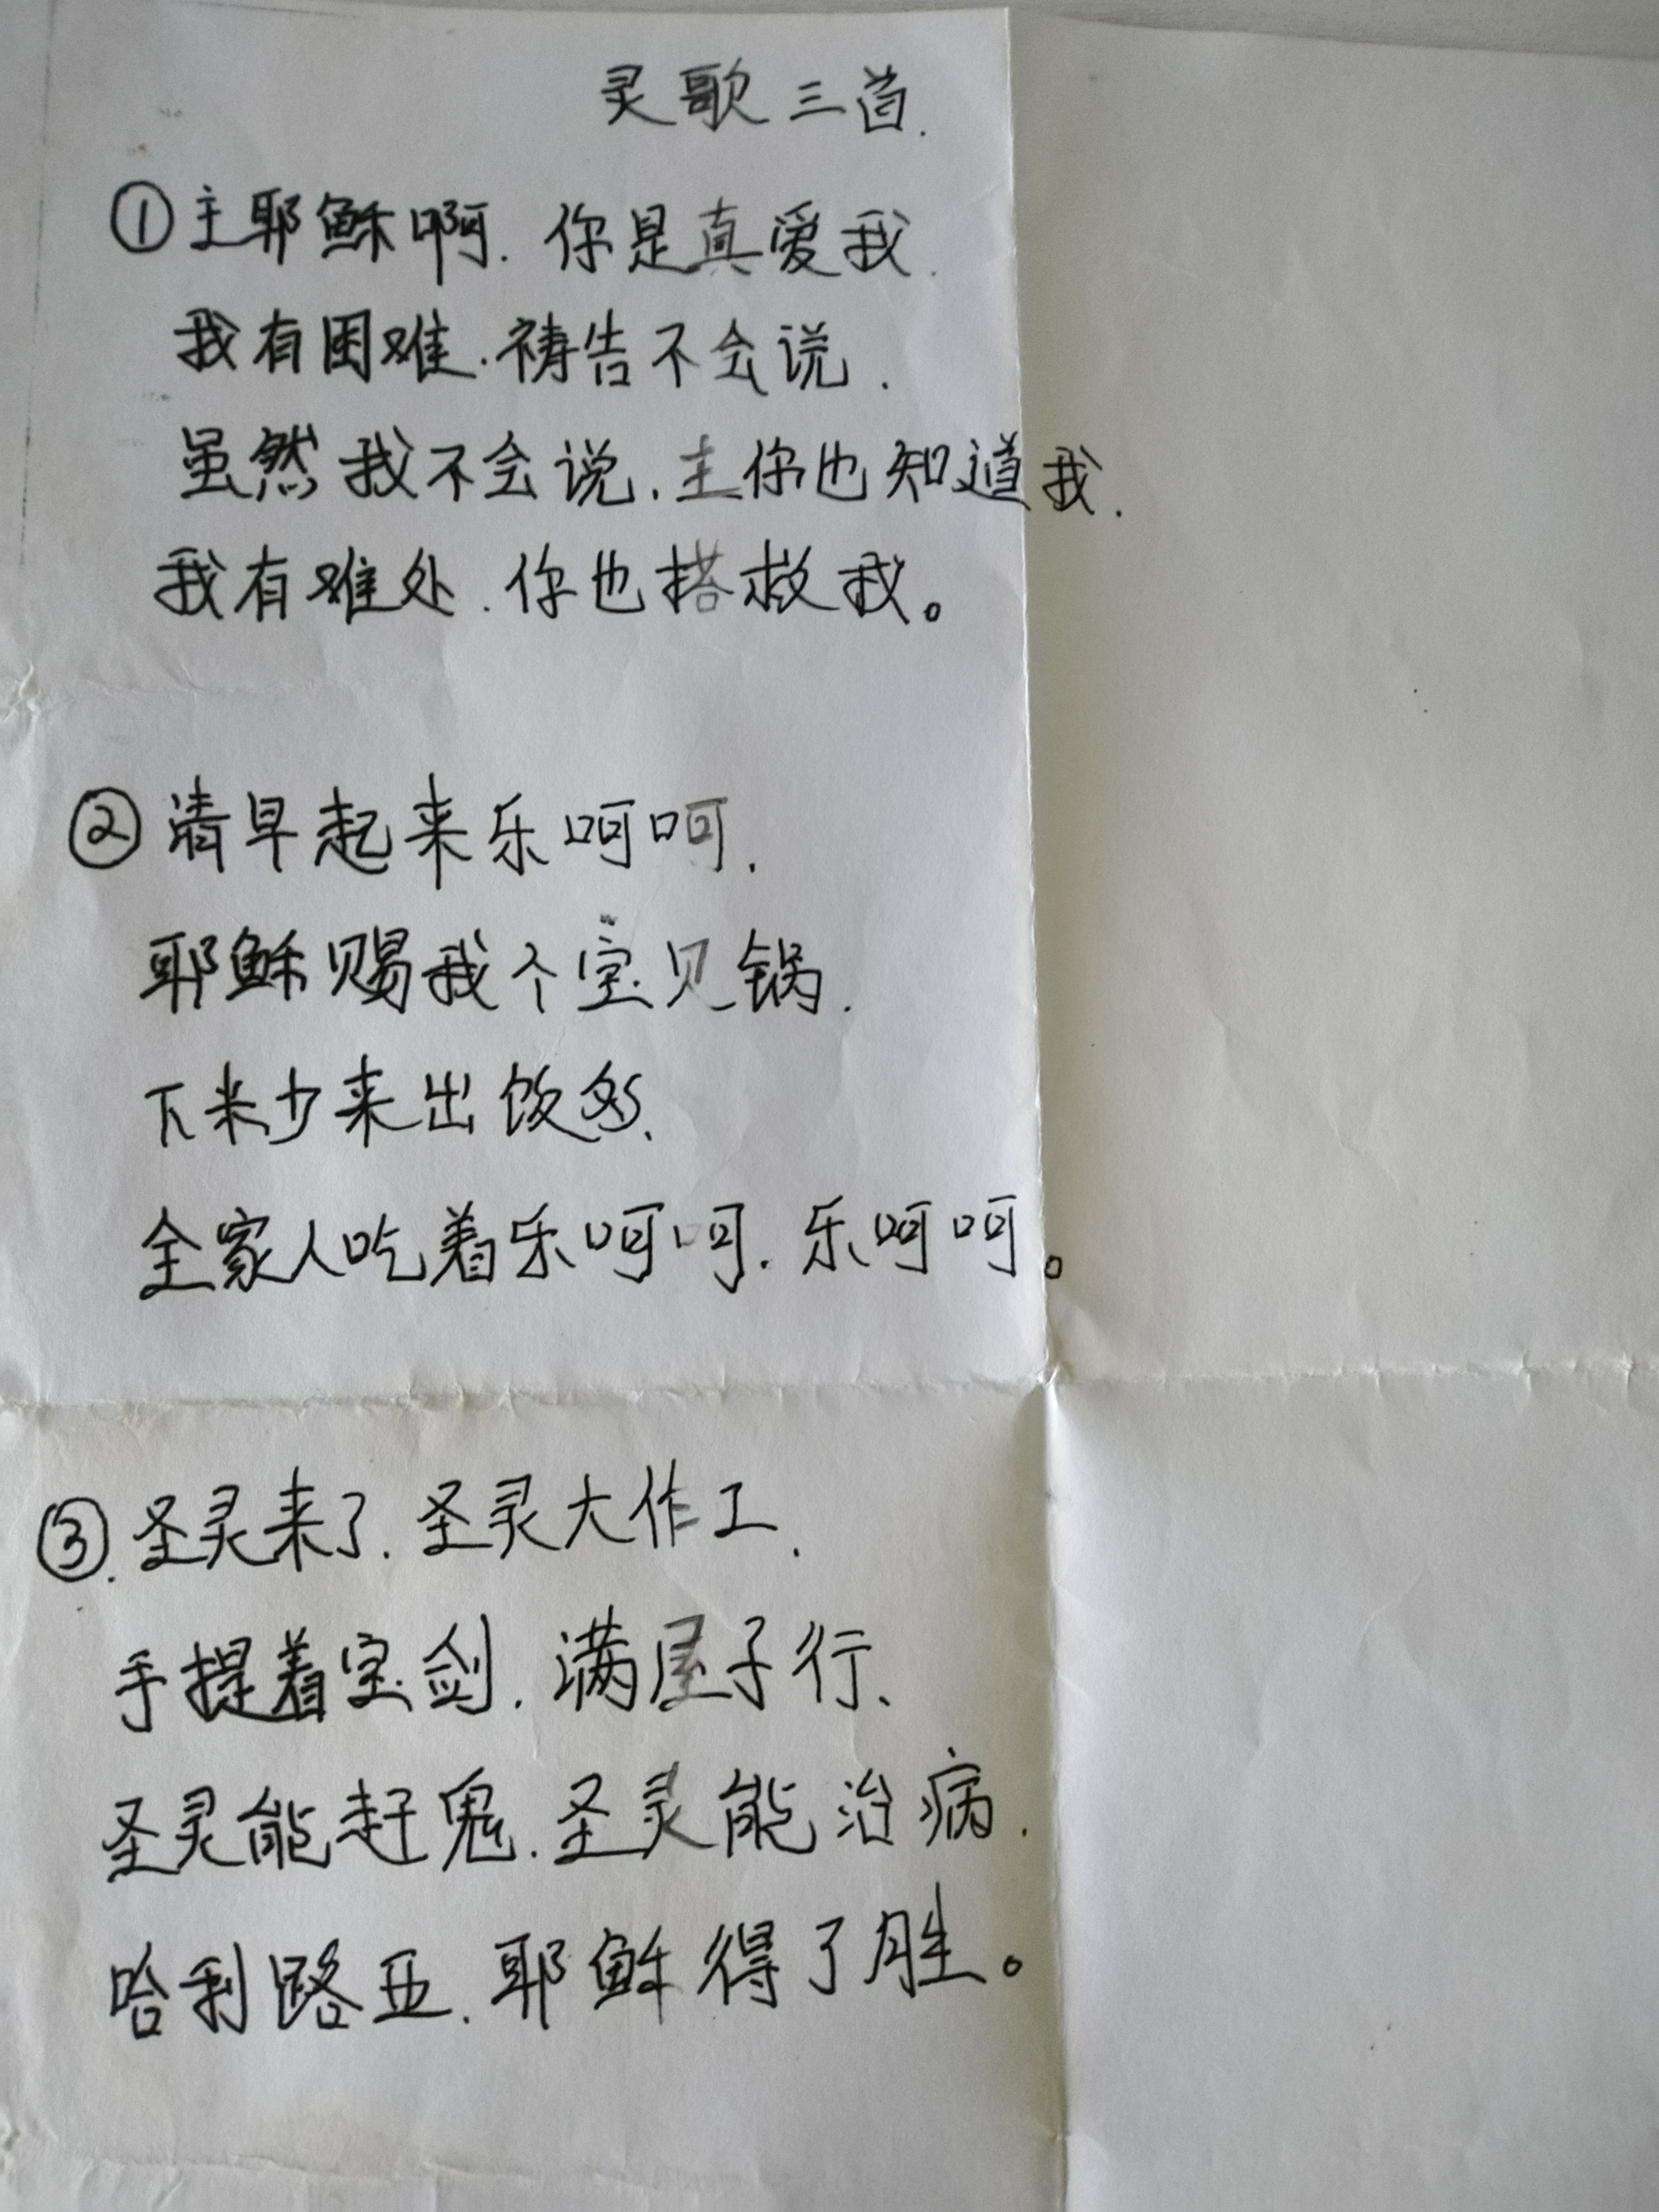 灵歌三首.
①主耶稣啊.你是真爱我.
我有困难.祷告不会说.
虽然我不会说.主你也知道我.
我有难处.你也搭救我。
②清早起来乐呵呵.
耶稣赐我个宝贝锅.
下米少来出饭多.
全家人吃着乐呵呵.乐呵呵。
③.圣灵来了.圣灵大作工.
手提着宝剑.满屋子行.
圣灵能赶鬼.圣灵能治病.
哈利路亚.耶稣得了胜。